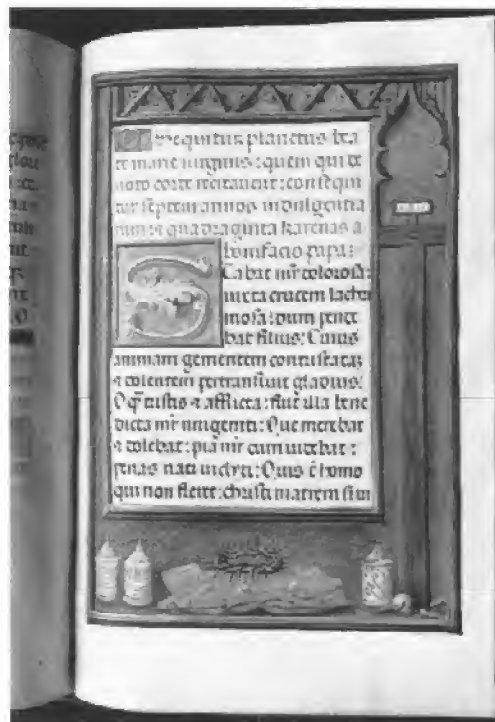 Sequitur planctus bea
te marie uirginis: quem qui de
uoto corde recitauerit: consequi
tur septem annos indulgentia
rum & quadraginta karenas a
bonifacio papa:
Stabat mr̃ dolorosa:
iuxta crucem lachri
mosa: dum pende
bat filius: Cuius
animam gementem contristataʒ
& dolentem pertransiuit gladius:
O q̃ tristis & afflicta: fuit illa bene
dicta mr̃ unigeniti: Que merebat
& dolebat: pia mr̃ cum uidebat:
penas nati incliti: Quis ẽ homo
qui non fleret: christi matrem si ui